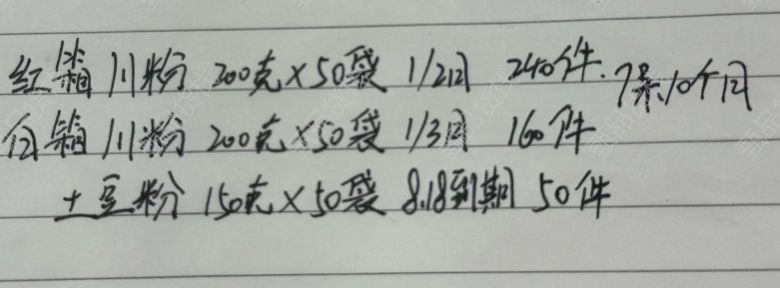 红薯川粉 200克×50袋 1/2日 240件. 保10个月
白薯川粉 200克×50袋 1/3日 160件
土豆粉 150克×50袋 8.18到期 50件